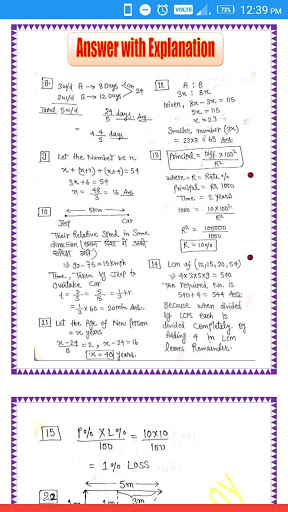 VOLTE 73% 12:39 PM
Answer with Explanation
8. 3w/d A → 8 Days
2w/d B → 12 Days
24
Total 5w/d
24/5 days. Ans.
4 4/5 days
9 Let the Number be x
x + (x+2) + (x+4) = 54
3x + 6 = 54
x = 48/3 = 16 Ans
10 5km
Jeep Car
Their Relative Speed in Same
direction (समान दिशा में उनके
⇒ 90 - 75 = 15 kmph
Time, Taken by Jeep to
Ovatake Car
t = 5/15 = 1/3 hr
= 1/3 × 60 = 20 min Ans
11 Let the Age of New Person
= x years
x-24/8 = 2, x-24 = 16
x = 40 years.
12 A : B
3x : 8x
Given, 8x - 3x = 115
5x = 115
x = 23
Smaller number (3x)
= 23×3 = 69 Ans
13 Principal = Diff. × 100²/R²
where = R = Rate%
Principal = Rs, 1000
Time = 2 years
1000 = 10×100²/R²
R² = 100000/1000
R = 10%
14 LCM of (12, 15, 20, 54)
⇒ 4×3×5×9 = 540
The required No. is
540 + 4 = 544 Ans
Because when divided
by LCM each is
divided completely. By
Adding 4 in LCM
leaves Remainder.
15 P% × L%/100 = 10×10/100
= 1% Loss
5m
22
3m